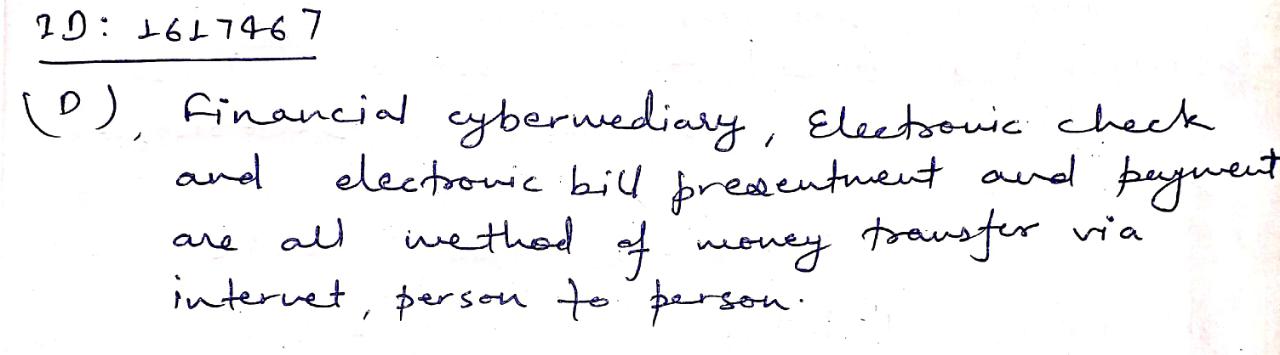 ID: 1617467
(D), Financial cybermediary, Electronic check
and electronic bill presentment and payment
are all method of money transfer via
internet, person to person.